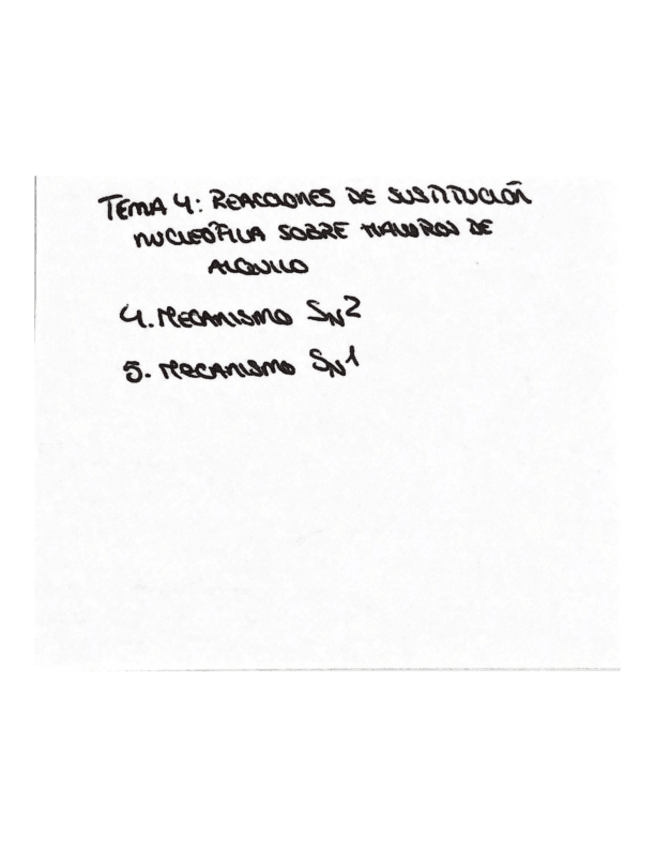 TEMA 4: REACCIONES DE SUSTITUCIÓN
NUCLEÓFILA SOBRE HALUROS DE
ALQUILO
4. MECANISMO SN2
5. MECANISMO SN1